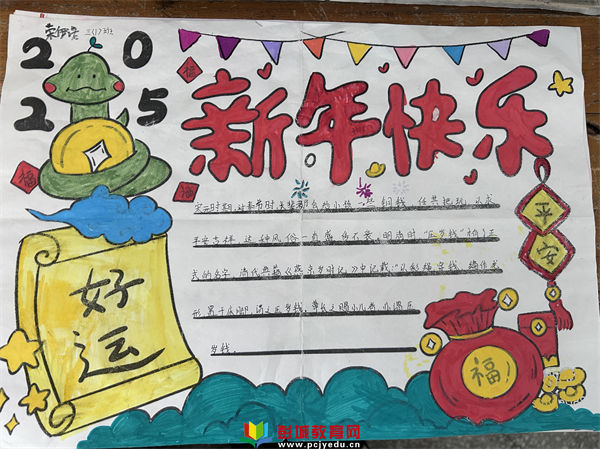 三(1)班
2025
新年快乐
福
福
福
宋元时期,过春节时,长辈都会给小孩一些铜钱,任其把玩,以求
平安吉祥,这种风俗一直盛行不衰,明清时"压岁钱"有了正
式的名字,清代典籍《燕京岁时记》中记载"以彩绳穿钱,编作龙
形,置于床脚,谓之压岁钱,尊长之赐小儿者,亦谓压
岁钱。
平安
好运
福
彭城教育网
www.pcjyedu.cn